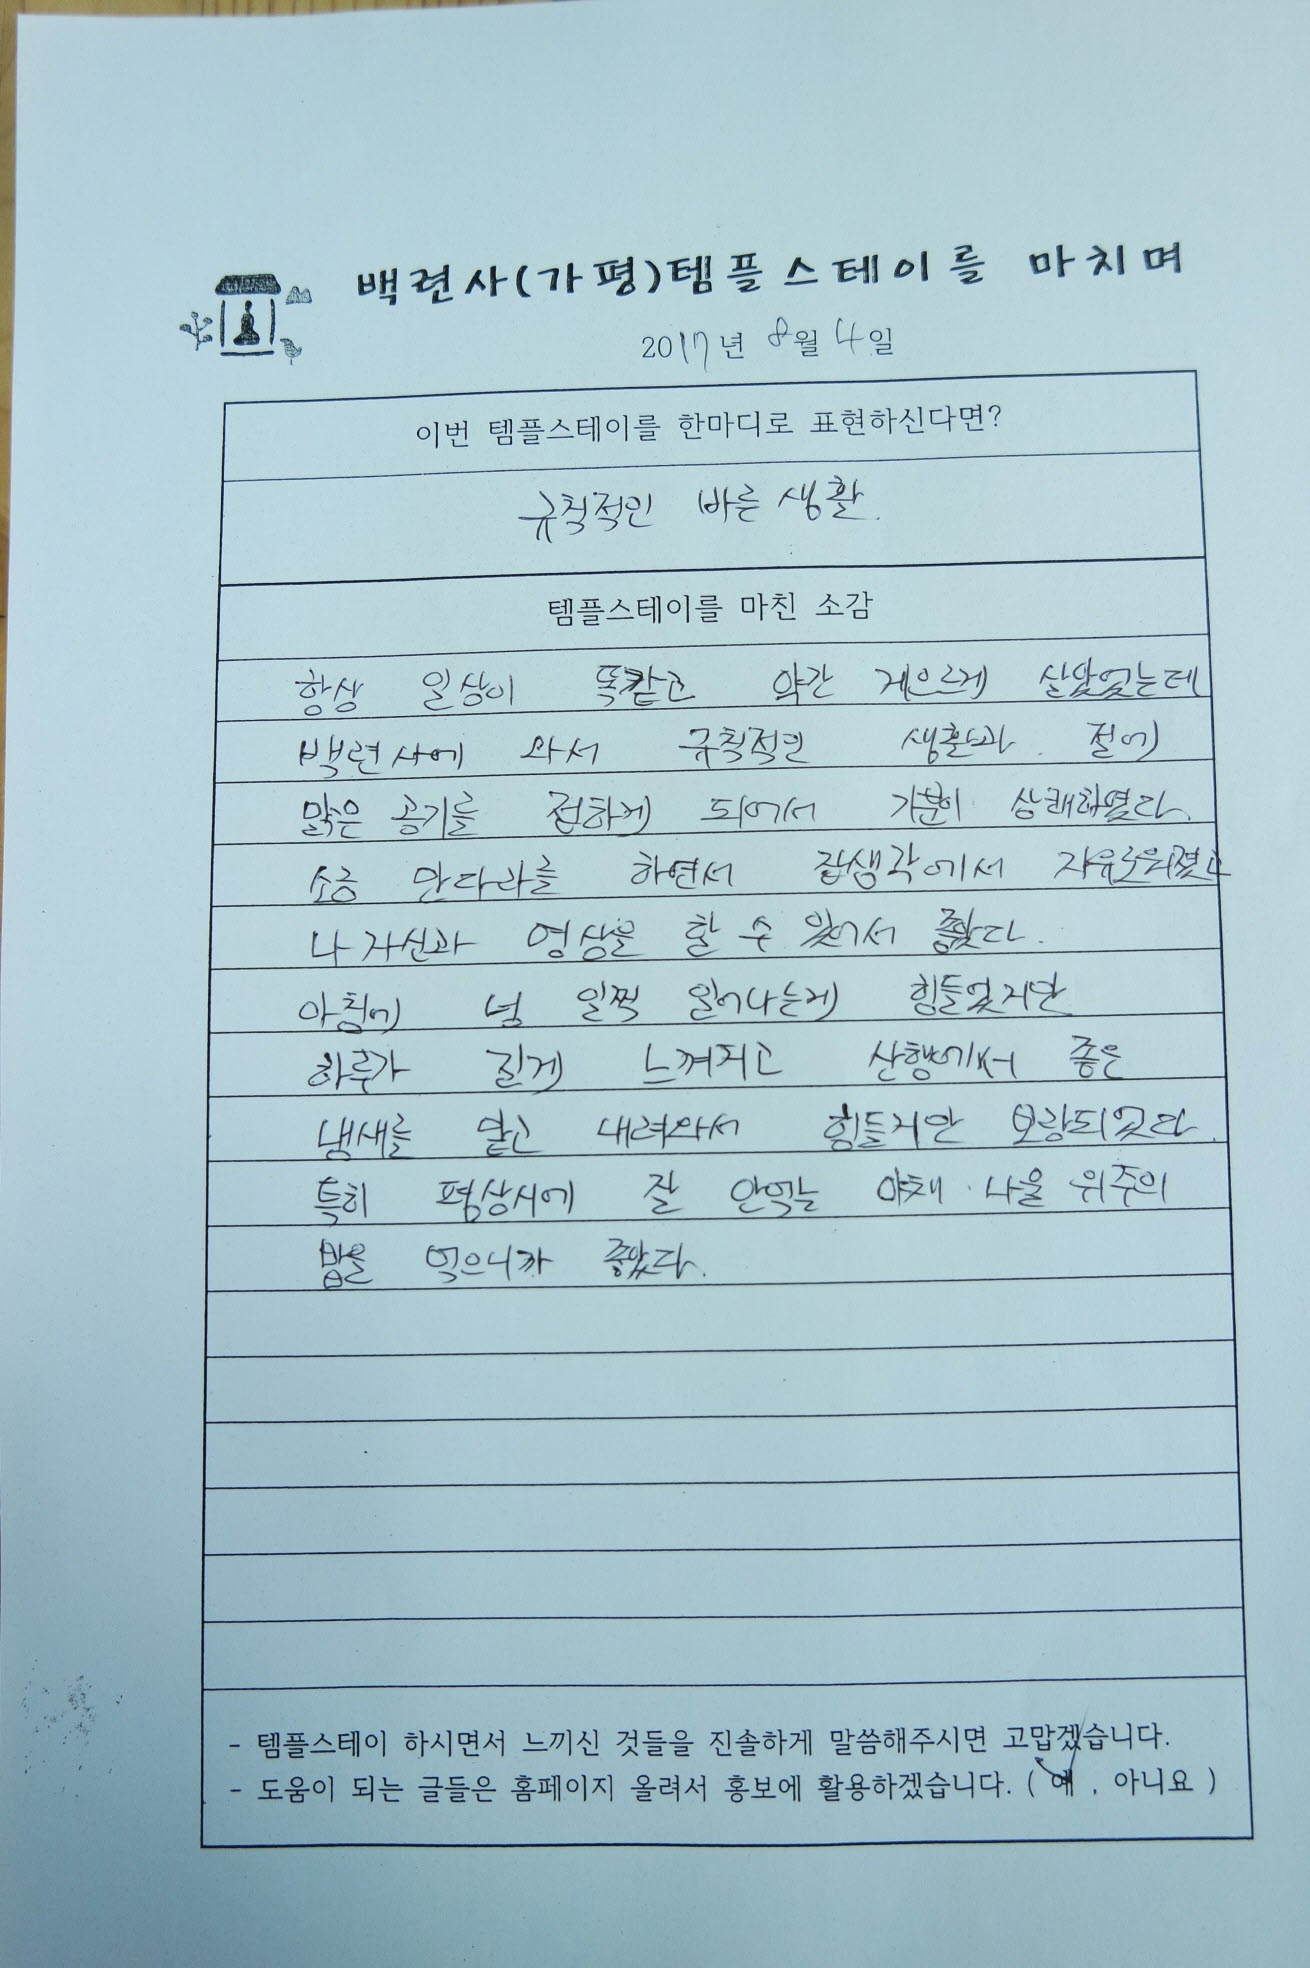 백련사(가평)템플스테이를 마치며
2017년 8월 4일
이번 템플스테이를 한마디로 표현하신다면?
규칙적인 바른 생활.
템플스테이를 마친 소감
항상 일상이 똑같고 약간 게으르게 살았었는데
백련사에 와서 규칙적인 생활과 절에
맑은 공기를 접하게 되어서 기분이 상쾌하였다.
소금 만다라를 하면서 잡생각에서 자유로워졌고
나 자신과 명상을 할 수 있어서 좋았다.
아침에 넘 일찍 일어나는게 힘들었지만
하루가 길게 느껴지고 산행에서 좋은
냄새를 맡고 내려와서 힘들지만 보람되었다.
특히 평상시에 잘 안먹는 야채 나물 위주의
밥을 먹으니까 좋았다.
- 템플스테이 하시면서 느끼신 것들을 진솔하게 말씀해주시면 고맙겠습니다.
- 도움이 되는 글들은 홈페이지 올려서 홍보에 활용하겠습니다. ( 예 , 아니요 )